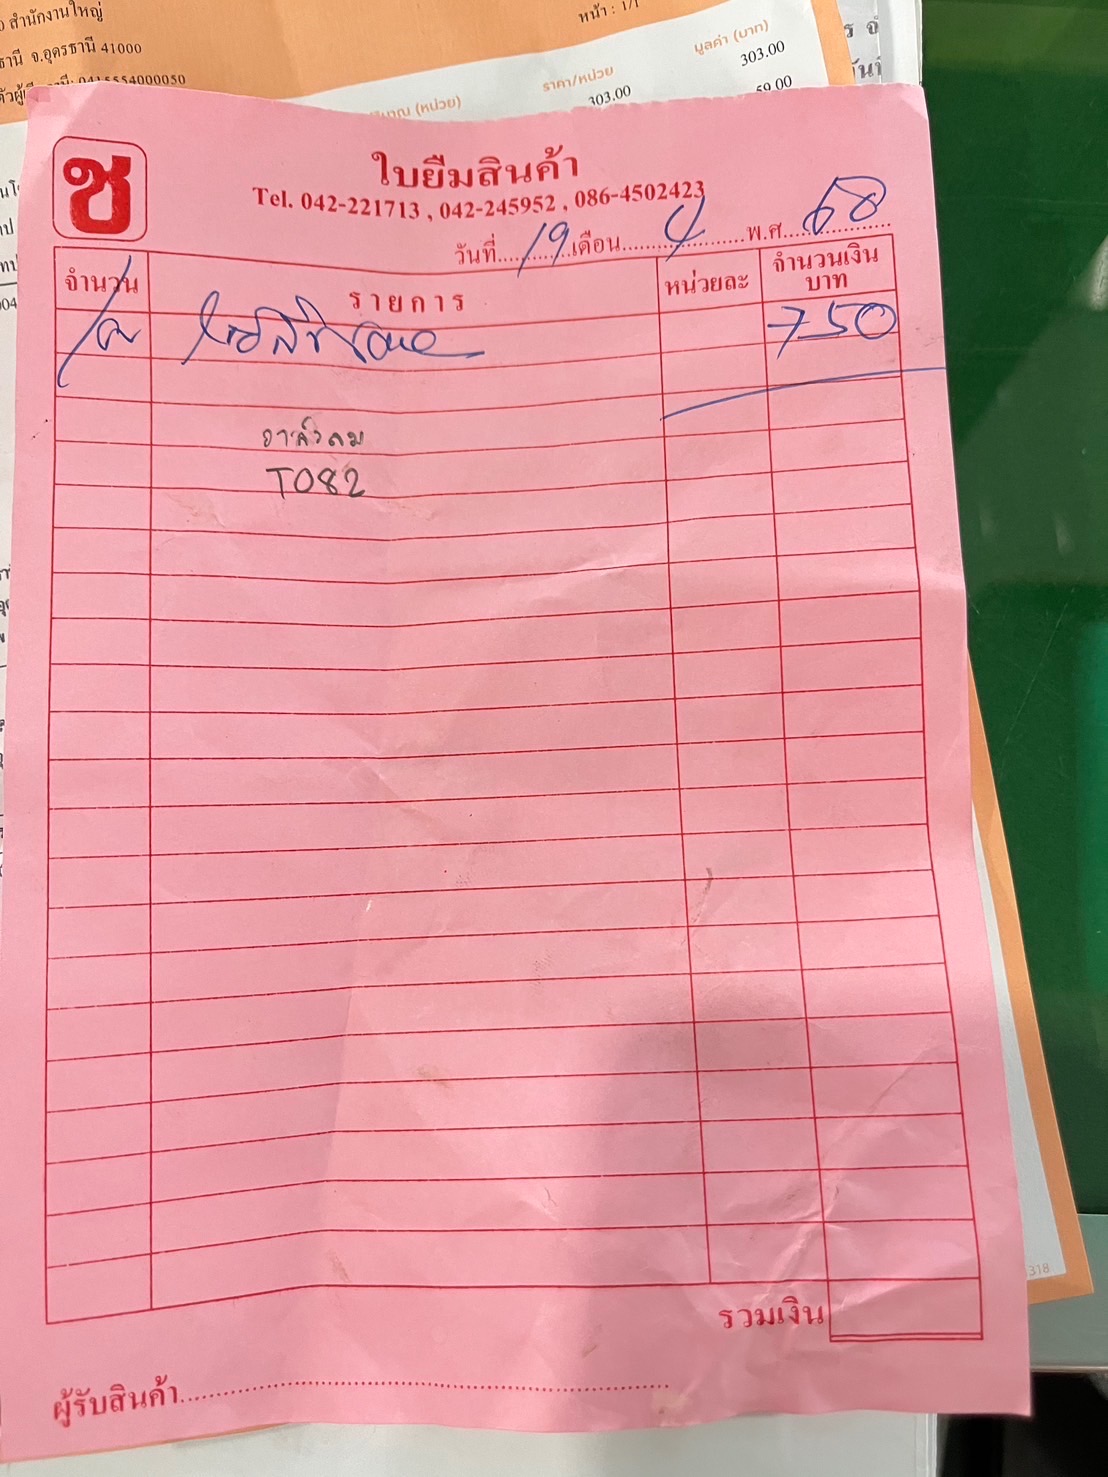 สำนักงานใหญ่
หน้า : 1/1
จ.อุดรธานี 41000
0415554000050
(หน่วย)
ราคา/หน่วย
มูลค่า (บาท)
303.00
303.00
59.00
ช
ใบยืมสินค้า
Tel. 042-221713 , 042-245952 , 086-4502423
วันที่ 19 เดือน 4 พ.ศ. 68
จำนวน รายการ หน่วยละ จำนวนเงิน บาท
750
T082
รวมเงิน
ผู้รับสินค้า
318